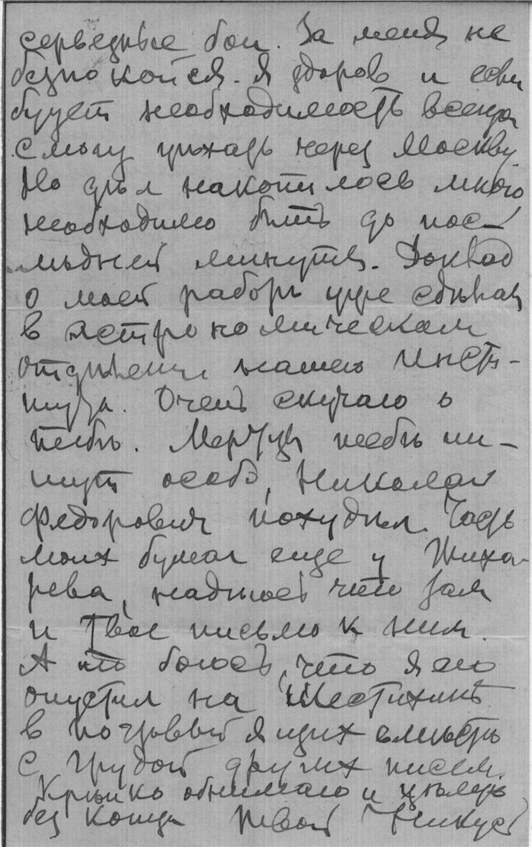 серьезные бои. За меня не
безпокойся. Я здоров и если
будет необходимость всегда
смогу уехать через Москву
Но дел накопилось много
необходимо быть до пос-
лѣдней минуты. Доклад
о моей работѣ уже сдѣлал
в Астрономическом
отдѣлении нашего Инсти-
тута. Очень скучаю о
тебѣ. тебѣ пи-
шут особо, Николай
Федорович похудѣл. Часть
моих бумаг еще у Жиха-
рева, надѣюсь что там
и Твое письмо к ним.
А то боюсь, что я его
опустил на
в почтовый ящик вмѣстѣ
с грудой других писем.
Крѣпко обнимаю и цѣлую
без конца Твой